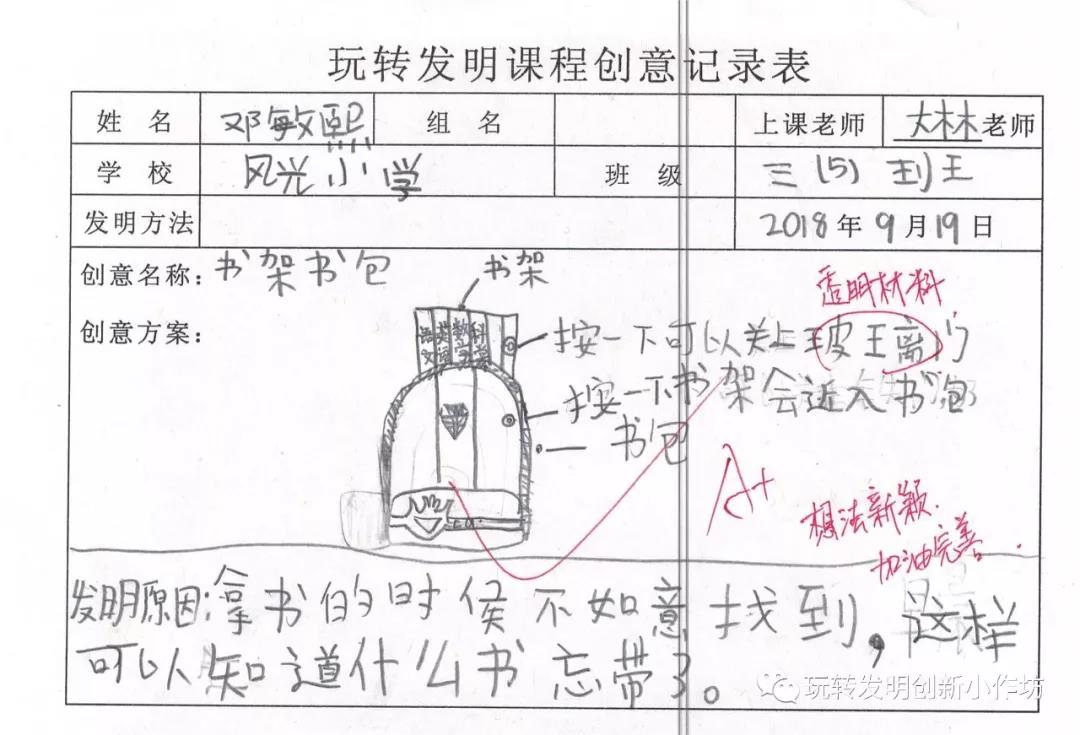 玩转发明课程创意记录表
姓 名 邓敏熙 组 名 上课老师 大林老师
学 校 风光小学 班 级 三(5)
发明方法 2018年9月19日
创意名称:书架书包
书架
透明材料
创意方案:
语文 英语 数学 科
按一下可以关上玻王离门
按一下书架会近入书包
书包
A+
想法新颖.
加油完善.
发明原因:拿书的时侯不如意找到,这样
可以知道什么书忘带了。
玩转发明创新小作坊